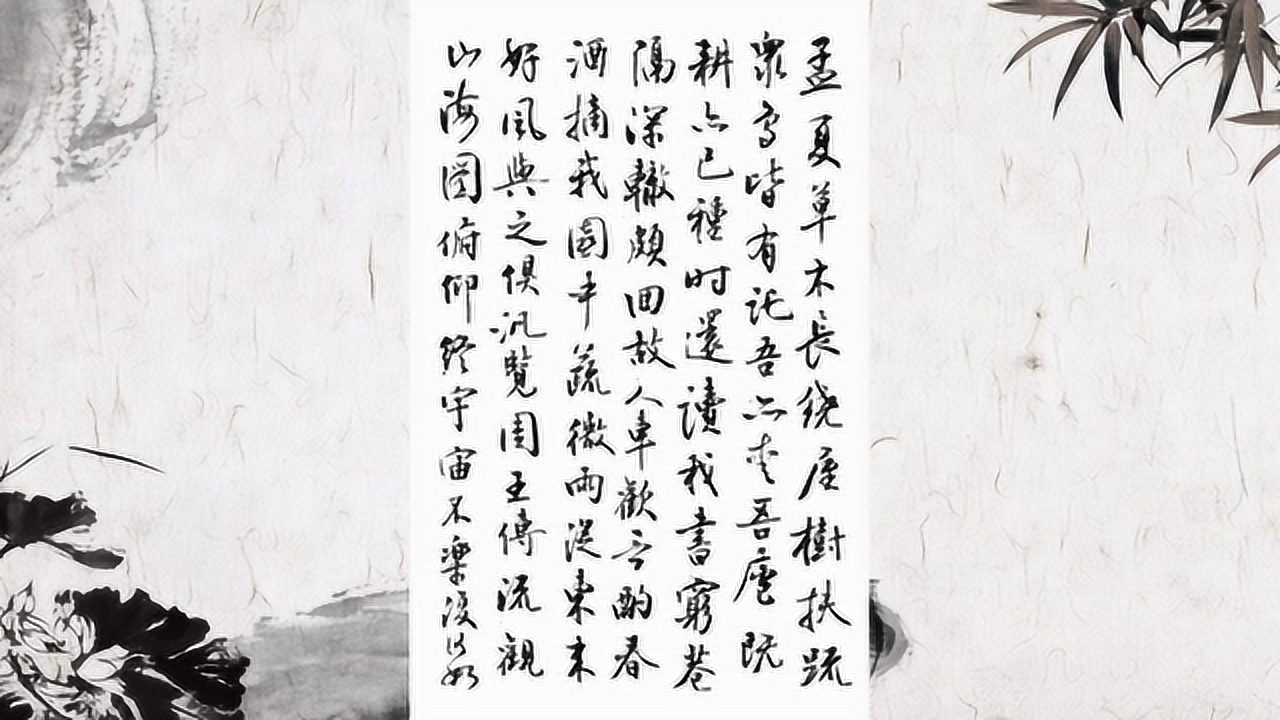 孟夏草木長繞屋樹扶疏
衆鳥皆有託吾亦愛吾廬既
耕亦已種时還讀我書窮巷
隔深轍頗回故人車歡言酌春
酒摘我園中蔬微雨從東來
好風與之俱汎覽周王傳流觀
山海圖俯仰終宇宙不樂復何如